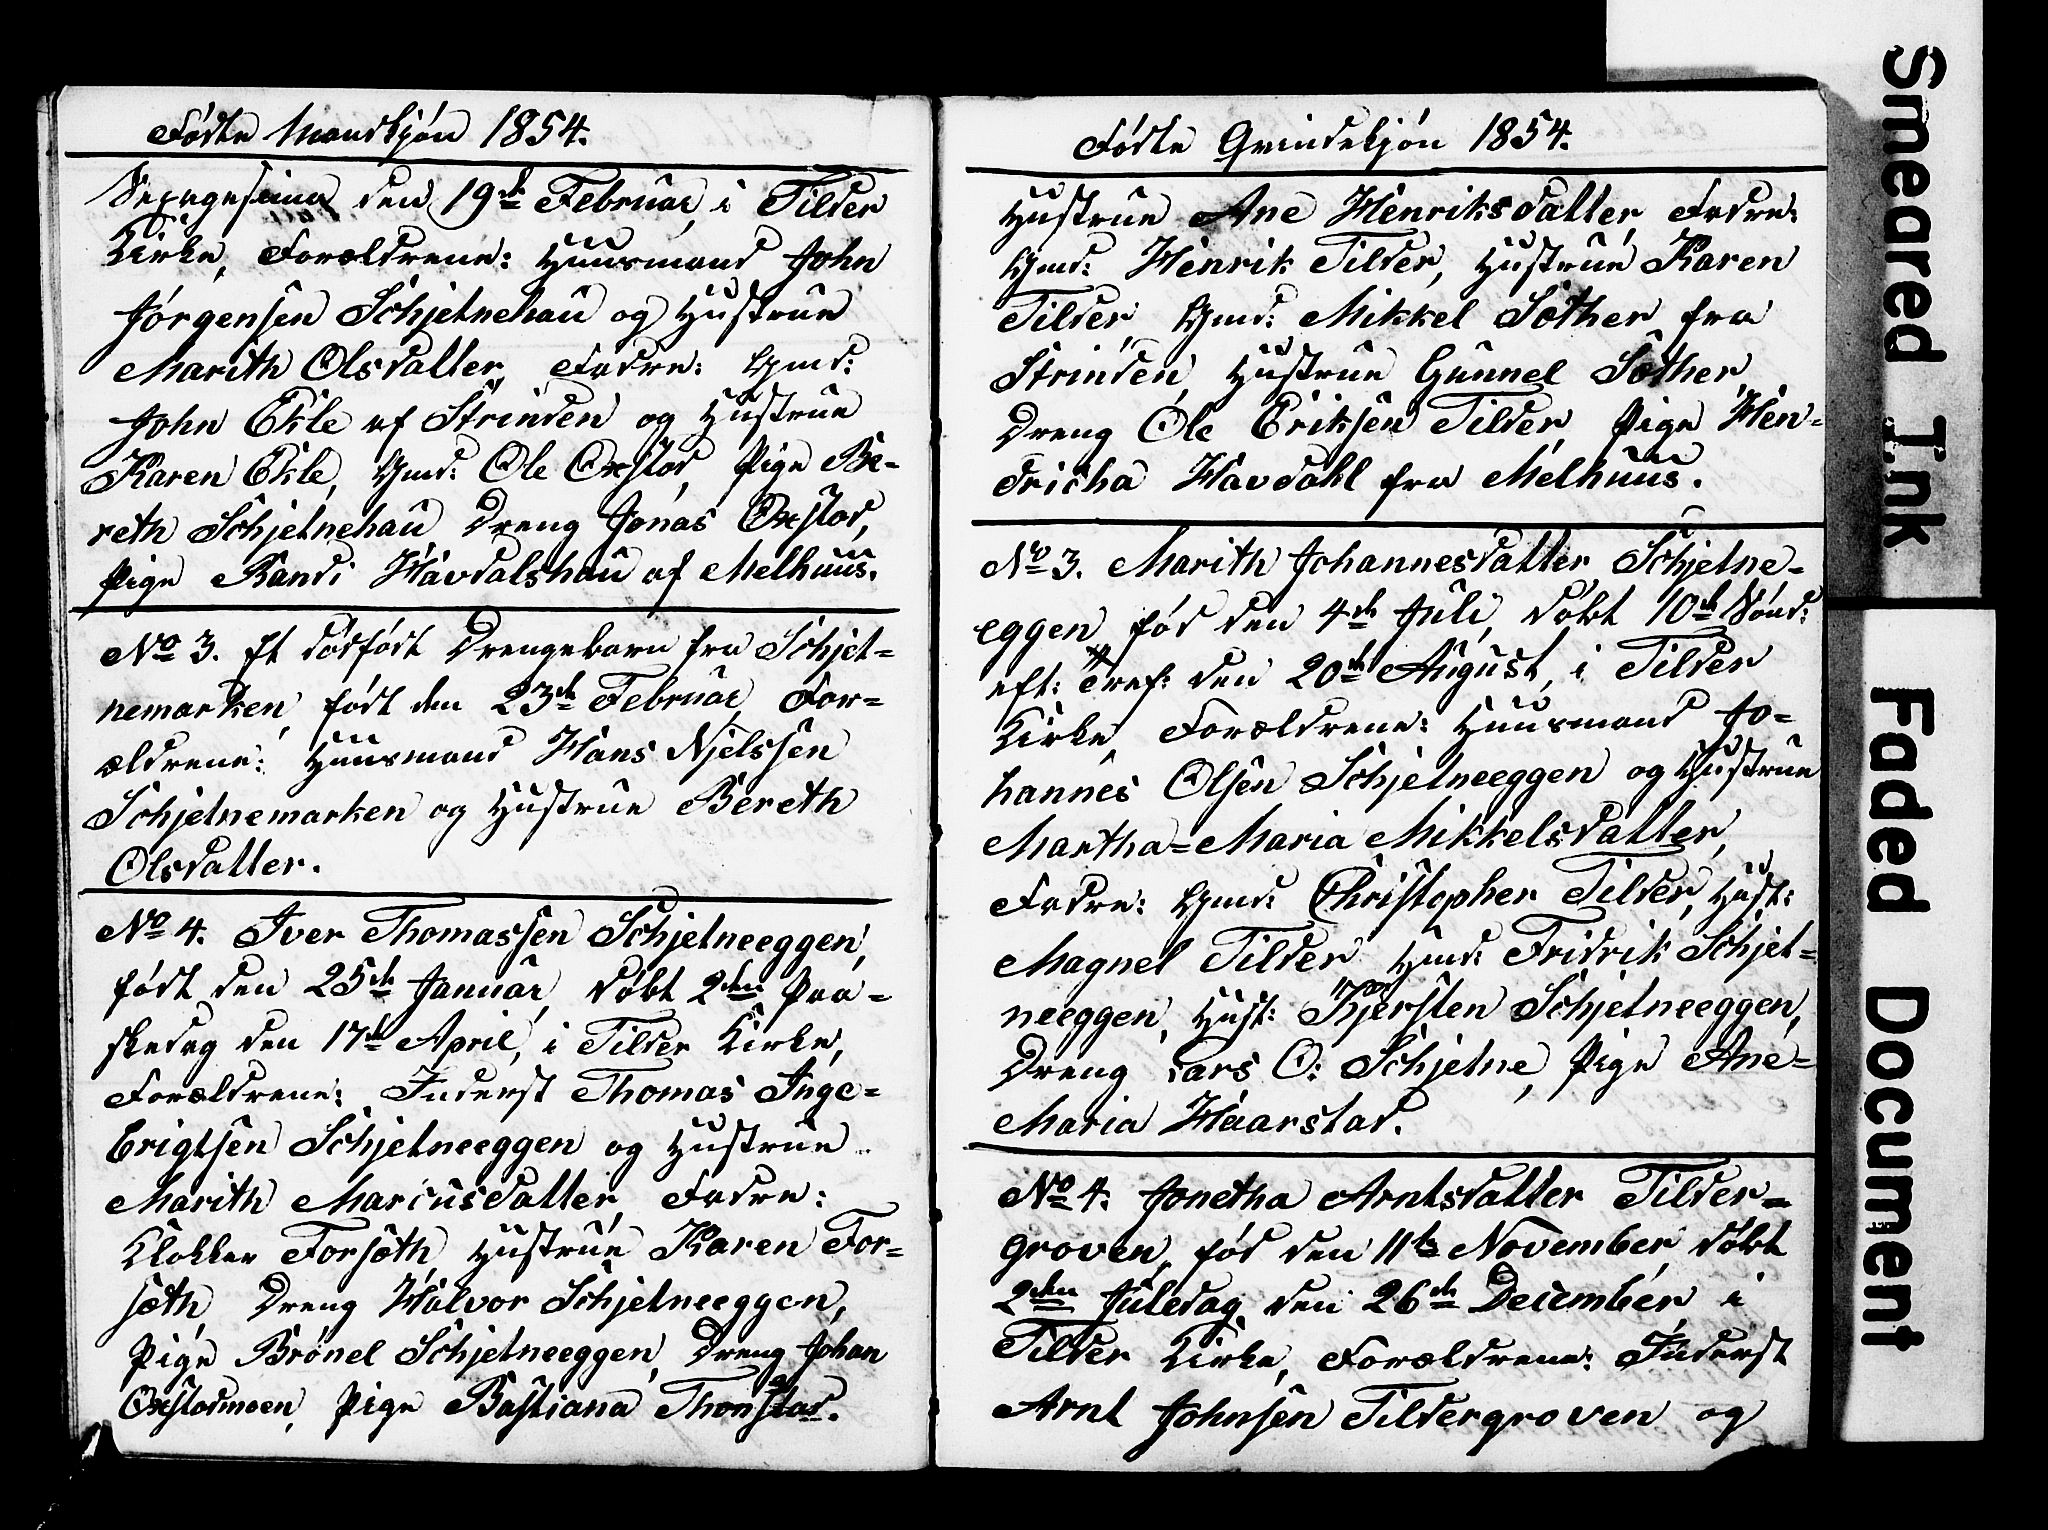 Födte Mandkjön 1854.
Sexagesima den 19de Februar, i Tilder
Kirke, Forældrene: Huusmand John
Jörgensen Schjetnehau og Hustrue
Marith Olsdatter, Fadre: Gmd:
John Ekle af Strinden og Hustrue
Karen Ekle, Gmd: Ole Oxstad, Pige Be-
reth Schjetnehau, Dreng Jonas Oxstad,
Pige Randi Havdalshau af Melhuus.
No 3. Et dödfödt Drengebarn fra Schjet-
nemarken, födt den 23de Februar, For-
ældrene: Huusmand Hans Njelssen
Schjetnemarken og Hustrue Bereth
Olsdatter.
No 4. Iver Thomassen Schjetneeggen,
födt den 25de Januar, döbt 2den Paa-
skedag den 17de April, i Tilder Kirke,
Forældrene: Inderst Thomas Inge-
brigtsen Schjetneeggen og Hustrue
Marith Marcusdatter, Fadre:
Klokker Forsæth, Hustrue Karen For-
sæth, Dreng Halvor Schjetneeggen,
Pige Brönel Schjetneeggen, Dreng Johan
Oxstadmoen, Pige Bastiana Thonstad.
Födte Qvindekjön 1854.
Hustrue Ane Henriksdatter, Fadre:
Gmd: Henrik Tilder, Hustrue Karen
Tilder, Gmd: Mikkel Sæther fra
Strinden, Hustrue Gunnel Sæther,
Dreng Ole Eriksen Tilder, Pige Hen-
dricha Havdahl fra Melhuus.
No 3. Marith Johannesdatter Schjetne-
eggen, föd den 4de Juli, döbt 10de Sönd:
eft: Tref: den 20de August, i Tilder
Kirke, Forældrene: Huusmand Jo-
hannes Olsen Schjetneeggen og Hustrue
Martha-Maria Mikkelsdatter,
Fadre: Gmd: Christopher Tilder, Hust:
Magnel Tilder, Hmd: Fridrik Schjet-
neeggen, Hust: Kjersten Schjetneeggen,
Dreng Lars O: Schjetne, Pige Ane-
Maria Haarstad.
No 4. Jonetha Arntsdatter Tilder-
groven, föd den 11te November, döbt
2den Juledag den 26de December i
Tilder Kirke, Forældrene: Inderst
Arnt Johnsen Tildergroven og
Smeared Ink
Faded Document